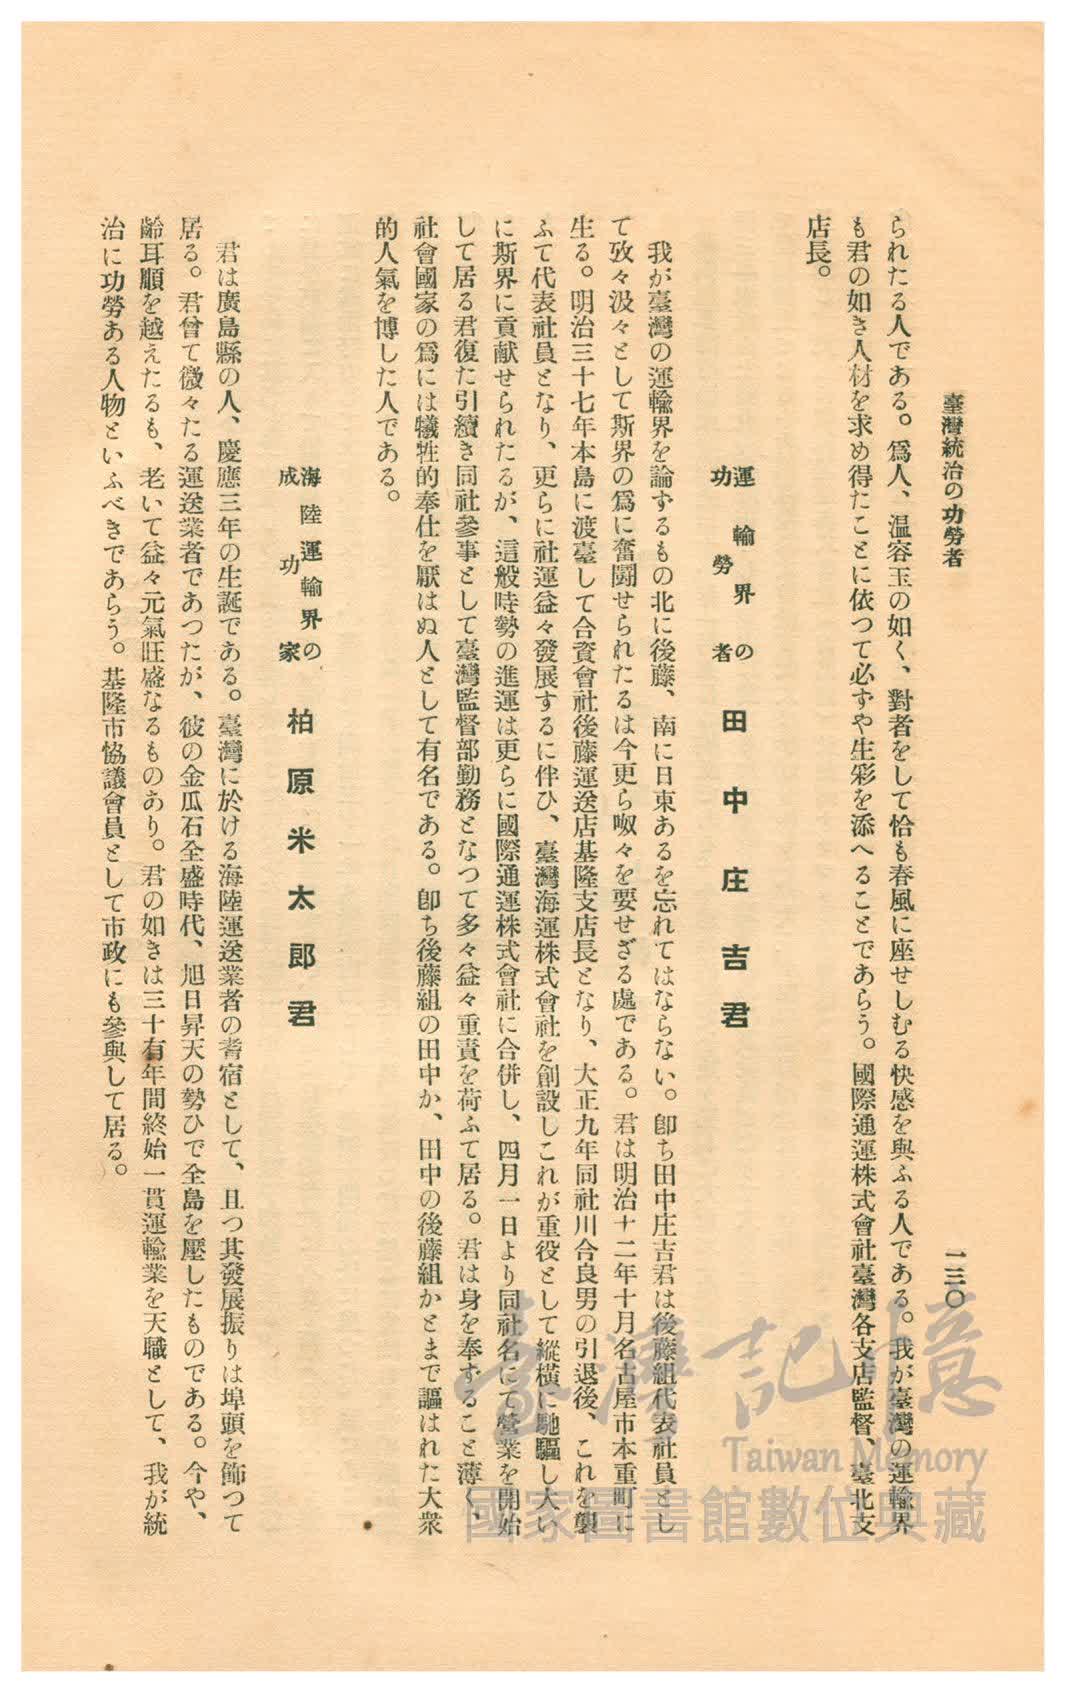 臺灣統治の功勞者
一三〇
られたる人である。爲人、温容玉の如く、對者をして恰も春風に座せしむる快感を與ふる人である。我が臺灣の運輸界
も君の如き人材を求め得たことに依つて必ずや生彩を添へることであらう。國際通運株式會社臺灣各支店監督、臺北支
店長。
運輸界の
功勞者
田中庄吉君
我が臺灣の運輸界を論ずるもの北に後藤、南に日東あるを忘れてはならない。卽ち田中庄吉君は後藤組代表社員とし
て孜々汲々として斯界の爲に奮鬪せられたるは今更ら呶々を要せざる處である。君は明治十二年十月名古屋市本重町に
生る。明治三十七年本島に渡臺して合資會社後藤運送店基隆支店長となり、大正九年同社川合良男の引退後、これを襲
ふて代表社員となり、更らに社運益々發展するに伴ひ、臺灣海運株式會社を創設しこれが重役として縱橫に馳驅し大い
に斯界に貢献せられたるが、這般時勢の進運は更らに國際通運株式會社に合併し、四月一日より同社名にて營業を開始
して居る君復た引續き同社參事として臺灣監督部勤務となつて多々益々重責を荷ふて居る。君は身を奉ずること薄く、
社會國家の爲には犧牲的奉仕を厭はぬ人として有名である。卽ち後藤組の田中か、田中の後藤組かとまで謳はれた大衆
的人氣を博した人である。
海陸運輸界の
成功家
柏原米太郎君
君は廣島縣の人、慶應三年の生誕である。臺灣に於ける海陸運送業者の耆宿として、且つ其發展振りは埠頭を飾つて
居る。君曾て微々たる運送業者であつたが、彼の金瓜石全盛時代、旭日昇天の勢ひで全島を壓したものである。今や、
齡耳順を越えたるも、老いて益々元氣旺盛なるものあり。君の如きは三十有年間終始一貫運輸業を天職として、我が統
治に功勞ある人物といふべきであらう。基隆市協議會員として市政にも參與して居る。
臺灣記憶
Taiwan Memory
國家圖書館數位典藏